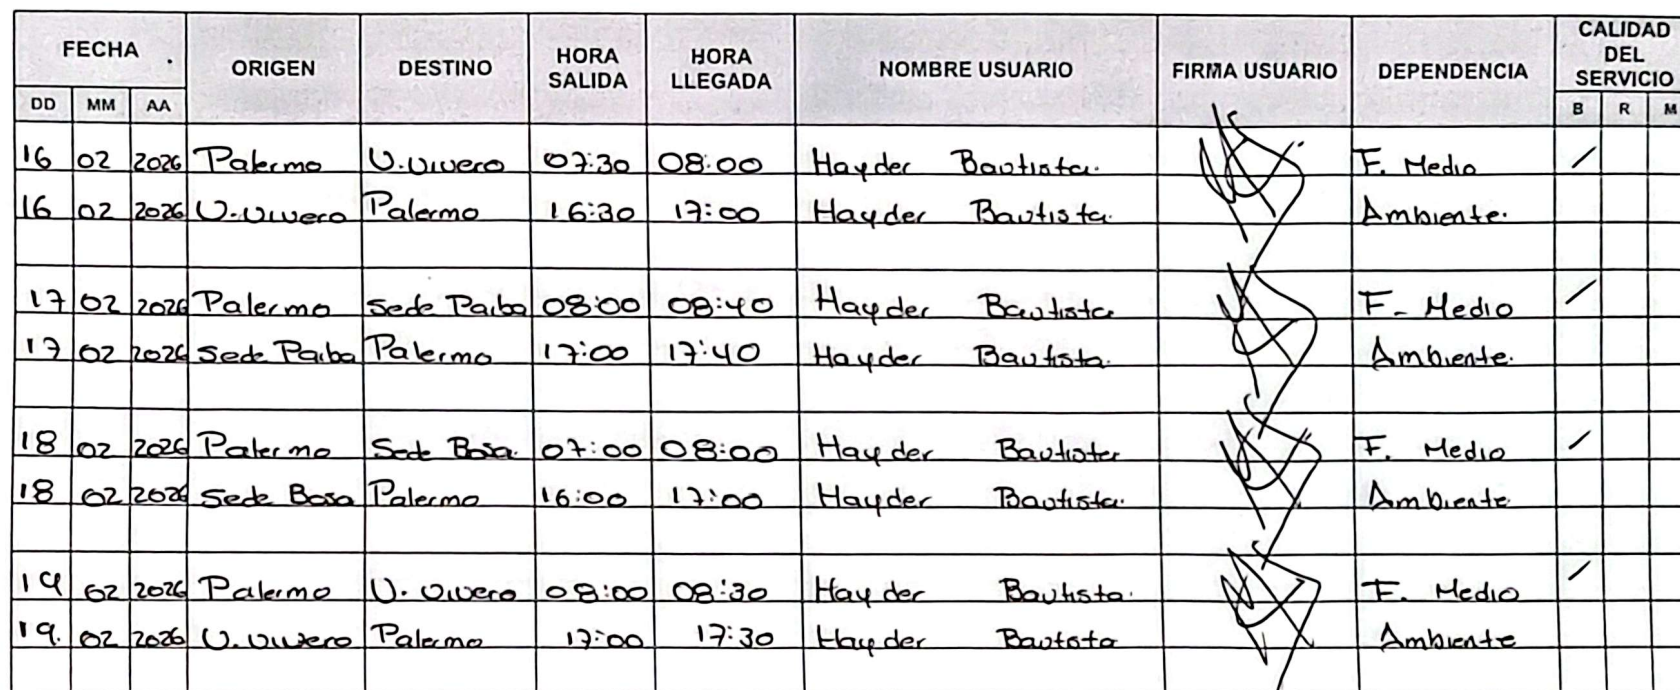 FECHA ORIGEN DESTINO HORA SALIDA HORA LLEGADA NOMBRE USUARIO FIRMA USUARIO DEPENDENCIA CALIDAD DEL SERVICIO
DD MM AA B R M
16 02 2026 Palermo U.Vivero 07:30 08:00 Hayder Bautista. F. Medio /
16 02 2026 U.Vivero Palermo 16:30 17:00 Hayder Bautista. Ambiente.
17 02 2026 Palermo Sede Paiba 08:00 08:40 Hayder Bautista F- Medio /
17 02 2026 Sede Paiba Palermo 17:00 17:40 Hayder Bautista. Ambiente.
18 02 2026 Palermo Sede Bosa. 07:00 08:00 Hayder Bautista F. Medio /
18 02 2026 Sede Bosa Palermo 16:00 17:00 Hayder Bautista. Ambiente
19 02 2026 Palermo U. Vivero 08:00 08:30 Hayder Bautista. F. Medio /
19. 02 2026 U.Vivero Palermo 17:00 17:30 Hayder Bautista Ambiente